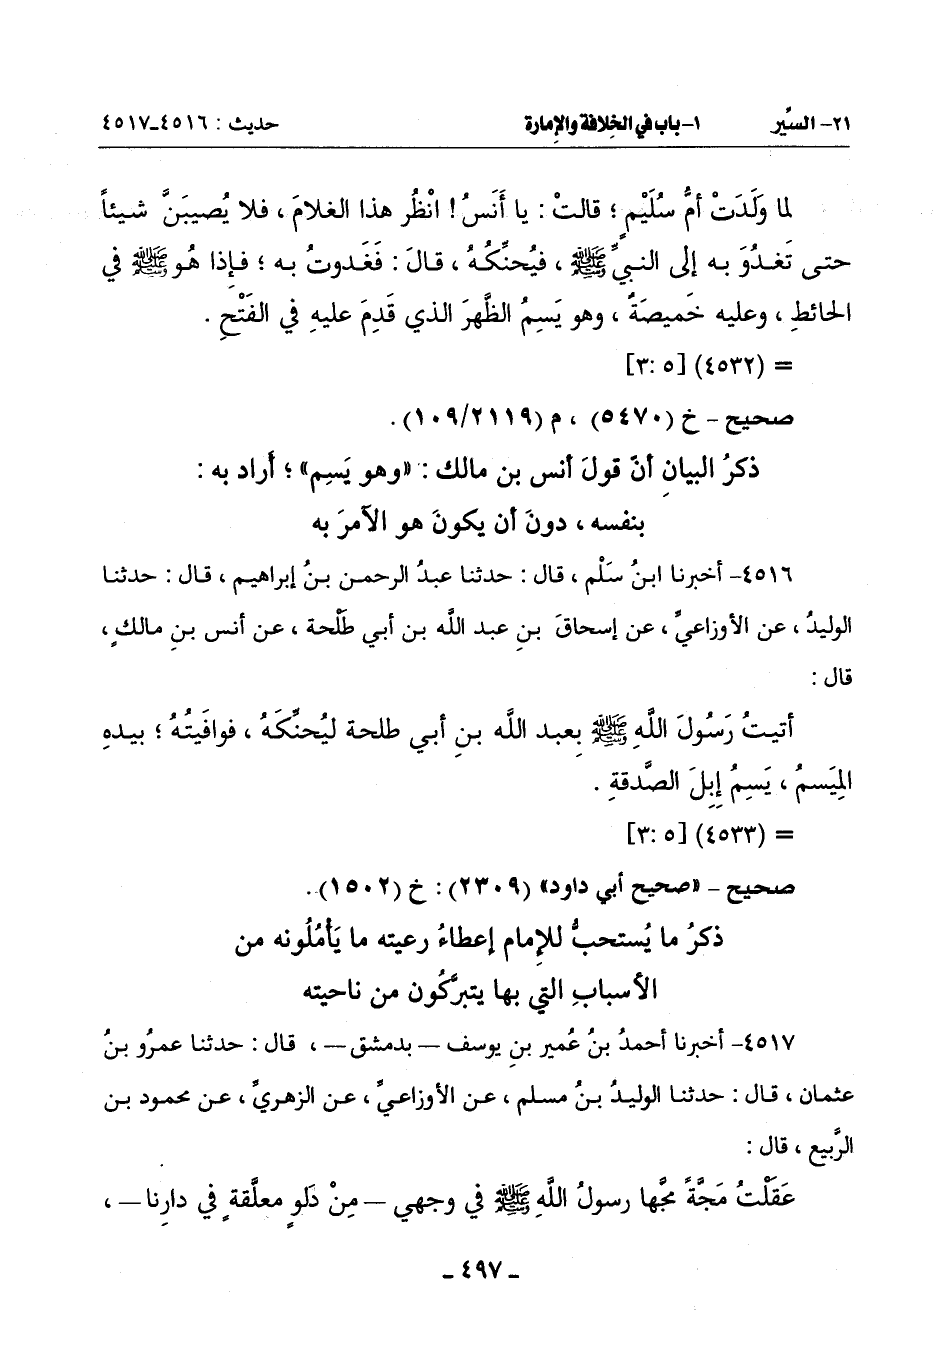 ٢١- السِّير ١- باب في الخلافة والإمارة حديث : ٤٥١٦-٤٥١٧
لما ولَدَتْ أمُّ سُلَيْمٍ ؛ قالتْ : يا أَنَسُ! انْظُر هذا الغلامَ ، فلا يُصيبَنَّ شيئاً
حتى تَغدُوَ به إلى النبيِّ ﷺ ، فيُحنِّكُهُ ، قالَ : فَغَدوتُ به ؛ فإذا هُو ﷺ في
الحائطِ ، وعليه خَميصَةٌ ، وهو يَسِمُ الظَّهرَ الذي قَدِمَ عليهِ في الفَتْحِ .
= (٤٥٣٢) [٥ :٣]
صحيح - خ (٥٤٧٠) ، م (١٠٩/٢١١٩).
ذكرُ البيانِ أنّ قولَ أنس بن مالك : «وهو يَسِم» ؛ أراد به :
بنفسه ، دونَ أن يكونَ هو الآمرَ به
٤٥١٦- أخبرنا ابنُ سَلْم ، قال : حدثنا عبدُ الرحمن بنُ إبراهيم ، قال : حدثنا
الوليدُ ، عن الأوزاعيِّ ، عن إسحاقَ بنِ عبد اللَّه بن أبي طَلْحة ، عن أنس بنِ مالكٍ ،
قال :
أتيتُ رَسُولَ اللَّهِ ﷺ بِعبد اللَّه بنِ أبي طلحة ليُحنِّكَهُ ، فوافَيتُهُ ؛ بيدهِ
المِيَسمُ ، يَسِمُ إِبِلَ الصَّدقةِ .
= (٤٥٣٣) [٥ :٣]
صحيح - «صحيح أبي داود» (٢٣٠٩) : خ (١٥٠٢).
ذكرُ ما يُستحبُّ للإمام إعطاءُ رعيته ما يَأْمُلُونه من
الأسبابِ التي بها يتبرَّكُون من ناحيته
٤٥١٧- أخبرنا أحمدُ بنُ عُمير بنِ يوسف — بدمشق — ، قال : حدثنا عمرُو بنُ
عثمان ، قال : حدثنا الوليدُ بنُ مسلم ، عن الأوزاعيِّ ، عن الزهريِّ ، عن محمود بن
الرَّبيع ، قال :
عَقَلْتُ مَجَّةً مجَّها رسولُ اللَّهِ ﷺ في وجهي — مِنْ دَلوٍ معلَّقةٍ في دارِنا — ،
- ٤٩٧ -